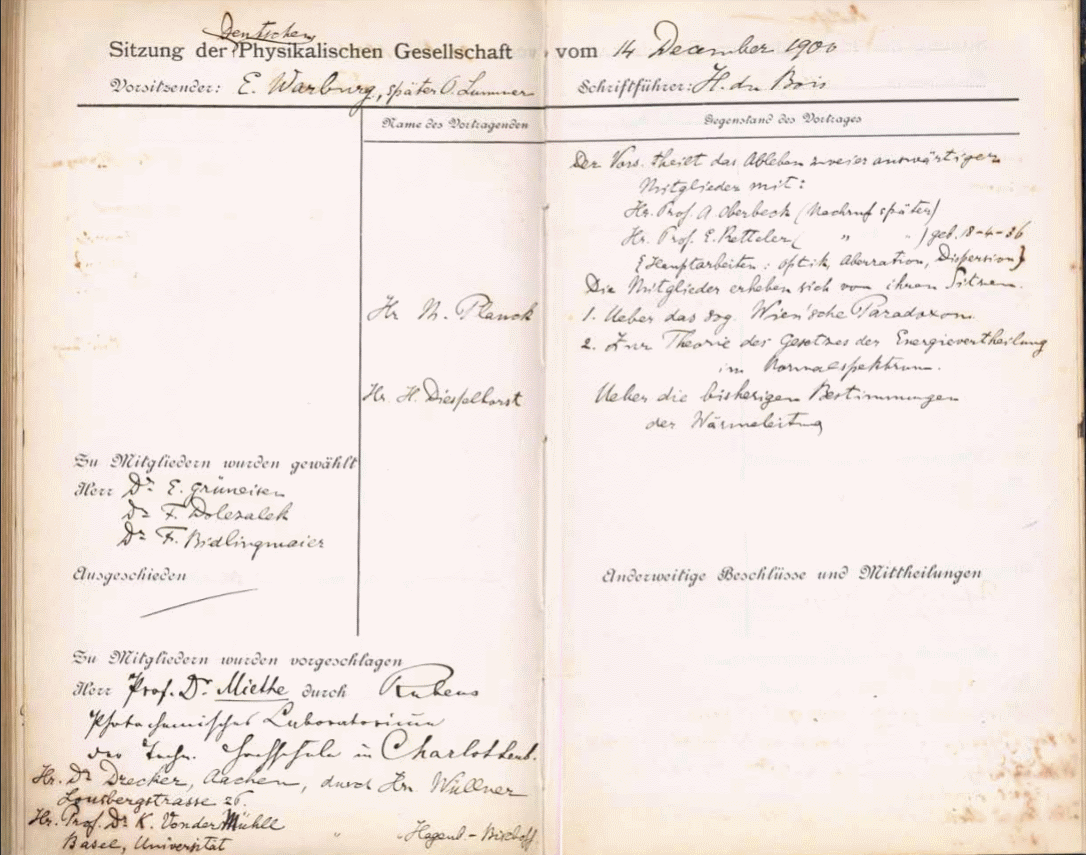 Sitzung der Deutschen Physikalischen Gesellschaft vom 14 December 1900
Vorsitzender: E. Warburg, später O. Lummer Schriftführer: H. du Bois
Name des Vortragenden
Gegenstand des Vortrages
Der Vors. theilt das Ableben zweier auswärtiger
Mitglieder mit:
Hr. Prof. A. Oberbeck (Nachruf später)
Hr. Prof. E. Ketteler ( " " ) geb. 18-4-36
{Hauptarbeiten: Optik, Aberration, Dispersion}
Die Mitglieder erheben sich von ihren Sitzen.
Hr M. Planck 1. Ueber das sog. Wien'sche Paradoxon
2. Zur Theorie des Gesetzes der Energievertheilung
im Normalspektrum.
Hr. H. Diesselhorst Ueber die bisherigen Bestimmungen
der Wärmeleitung
Zu Mitgliedern wurden gewählt
Herr Dr E. Grüneisen
Dr F. Dolezalek
Dr F. Bidlingmaier
Ausgeschieden
Anderweitige Beschlüsse und Mittheilungen
Zu Mitgliedern wurden vorgeschlagen
Herr Prof. Dr. Miethe durch Rubens
Photochemisches Laboratorium
der Techn. Hochschule in Charlottenb.
Hr. Dr Drecker, Aachen, durch Hrn Wüllner
Lousbergstrasse 26.
Hr. Prof. Dr K. VonderMühll " " Hagenb.-Bischoff
Basel, Universität